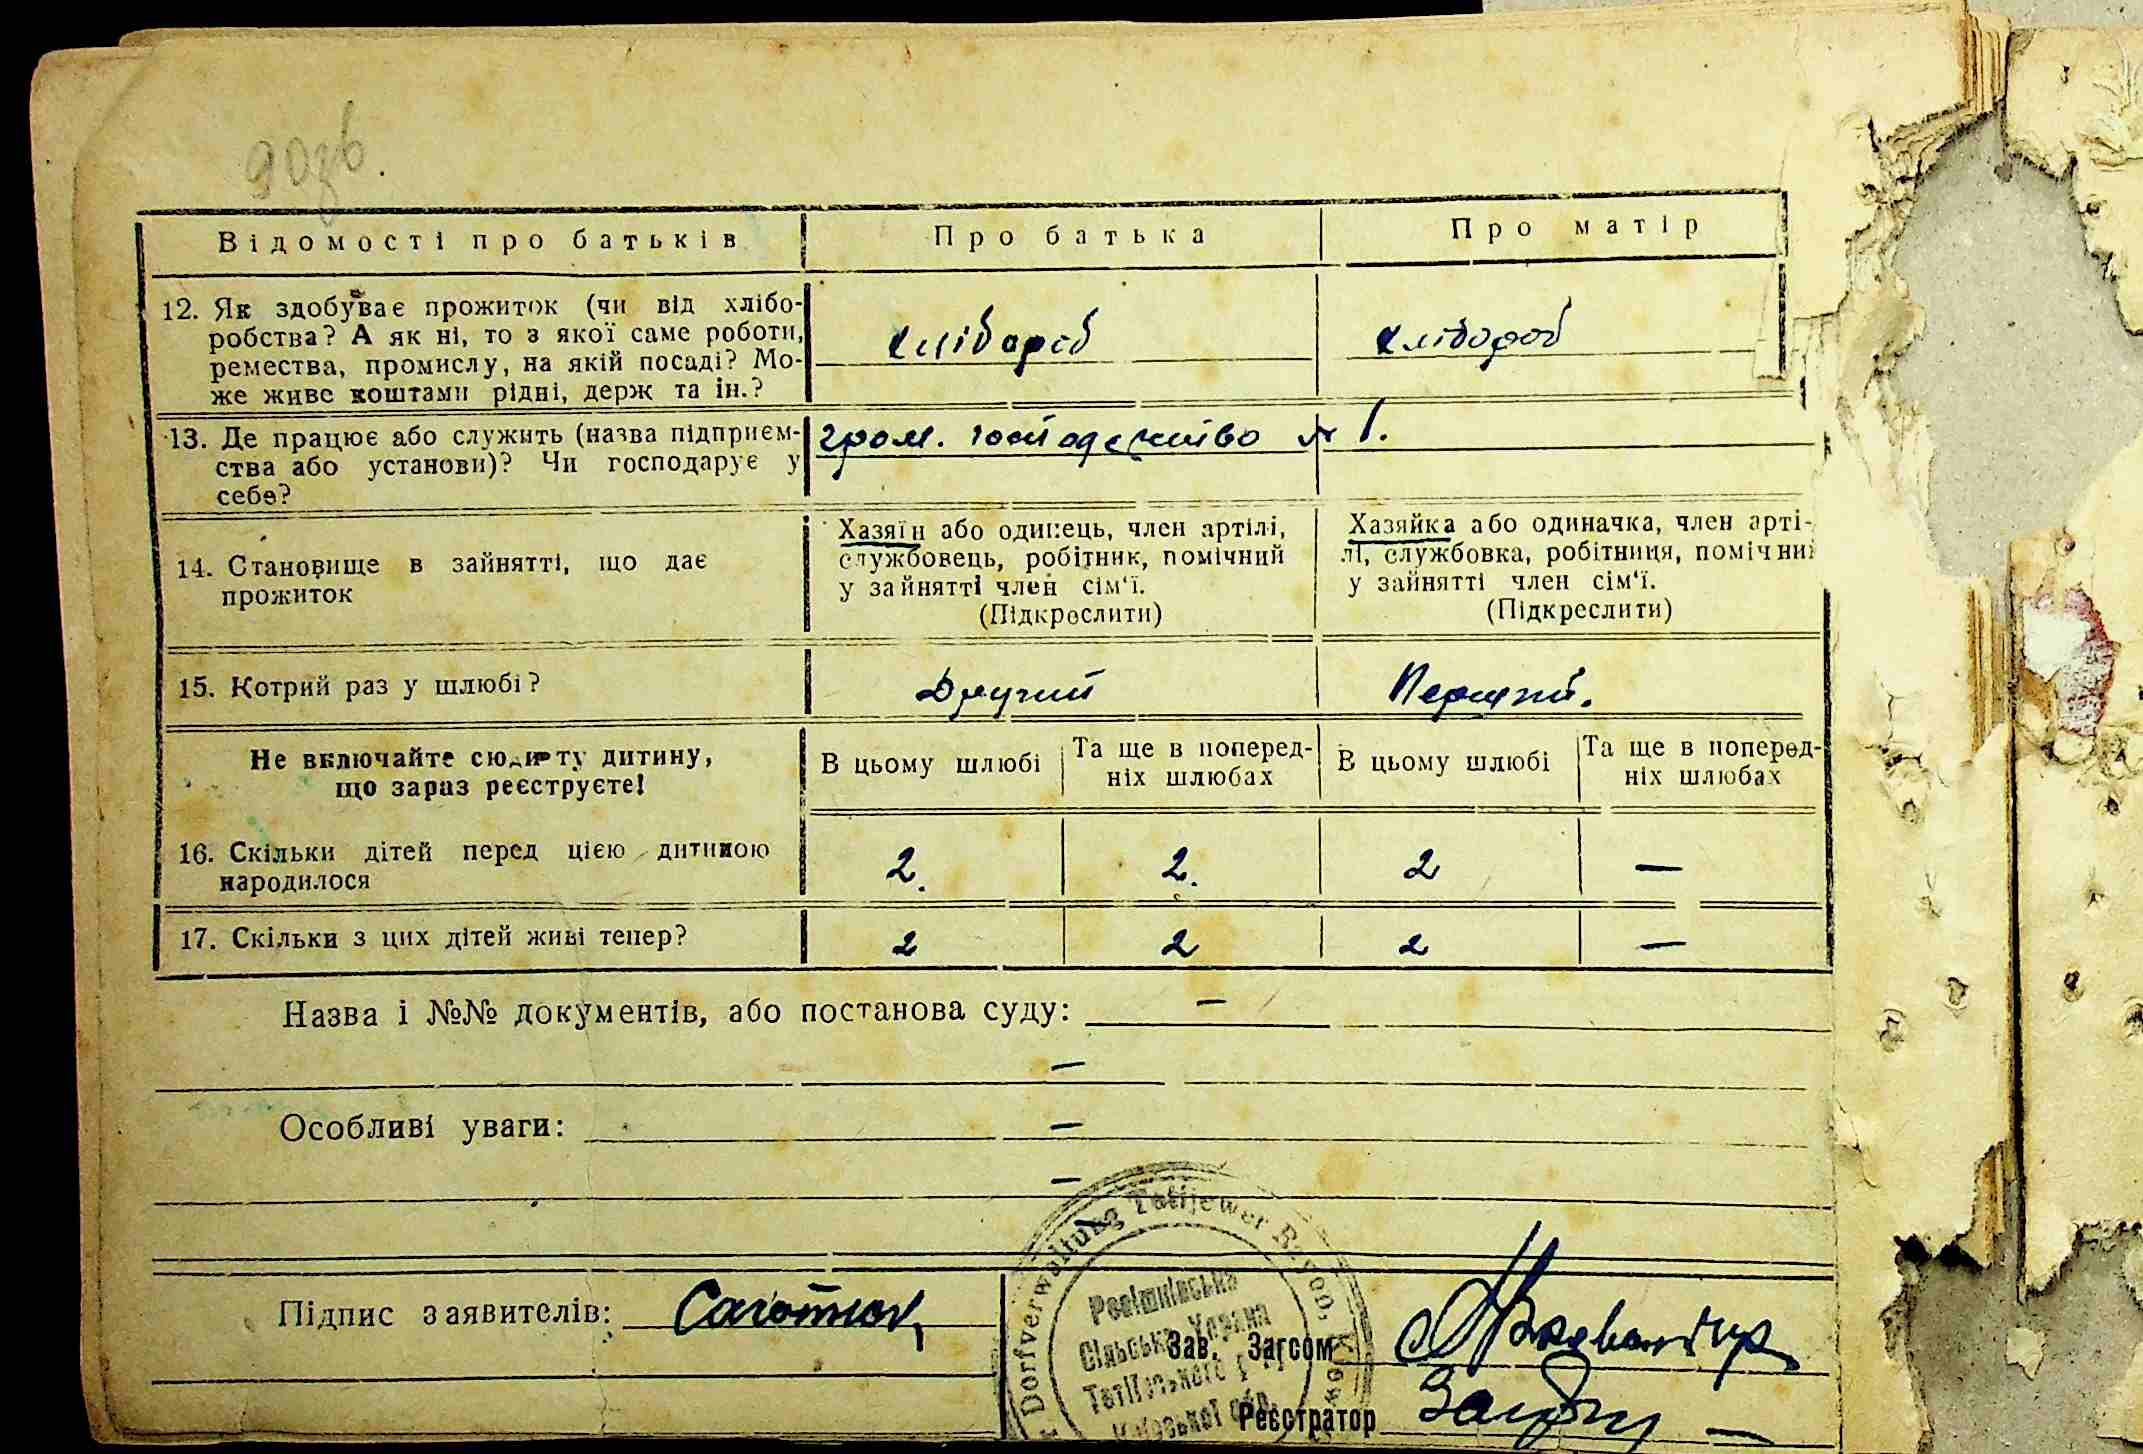 90зв.
Відомості про батьків
Про батька
Про матір
12. Як здобуває прожиток (чи від хлібо-
робства? А як ні, то з якої саме роботи,
ремества, промислу, на якій посаді? Мо-
же живе коштами рідні, держ та ін.?
хлібороб
хлібороб
13. Де працює або служить (назва підприєм-
ства або установи)? Чи господарує у
себе?
гром. господарство № 1.
14. Становище в зайнятті, що дає
прожиток
Хазяїн або одинець, член артілі,
службовець, робітник, помічний
у зайнятті член сім'ї.
(Підкреслити)
Хазяйка або одиначка, член арті-
лі, службовка, робітниця, помічни
у зайнятті член сім'ї.
(Підкреслити)
15. Котрий раз у шлюбі?
Другий
Перший.
Не включайте сюди ту дитину,
що зараз реєструєте!
В цьому шлюбі
Та ще в поперед-
ніх шлюбах
В цьому шлюбі
Та ще в поперед-
ніх шлюбах
16. Скільки дітей перед цією дитиною
народилося
2. 2. 2 —
17. Скільки з цих дітей живі тепер?
2 2 2 —
Назва і №№ документів, або постанова суду: —
—
Особливі уваги: —
—
Dorfverwaltung Tatijewer Rayon,
Сільська Управа
Підпис заявителів:
Зав. Загсом
Реєстратор